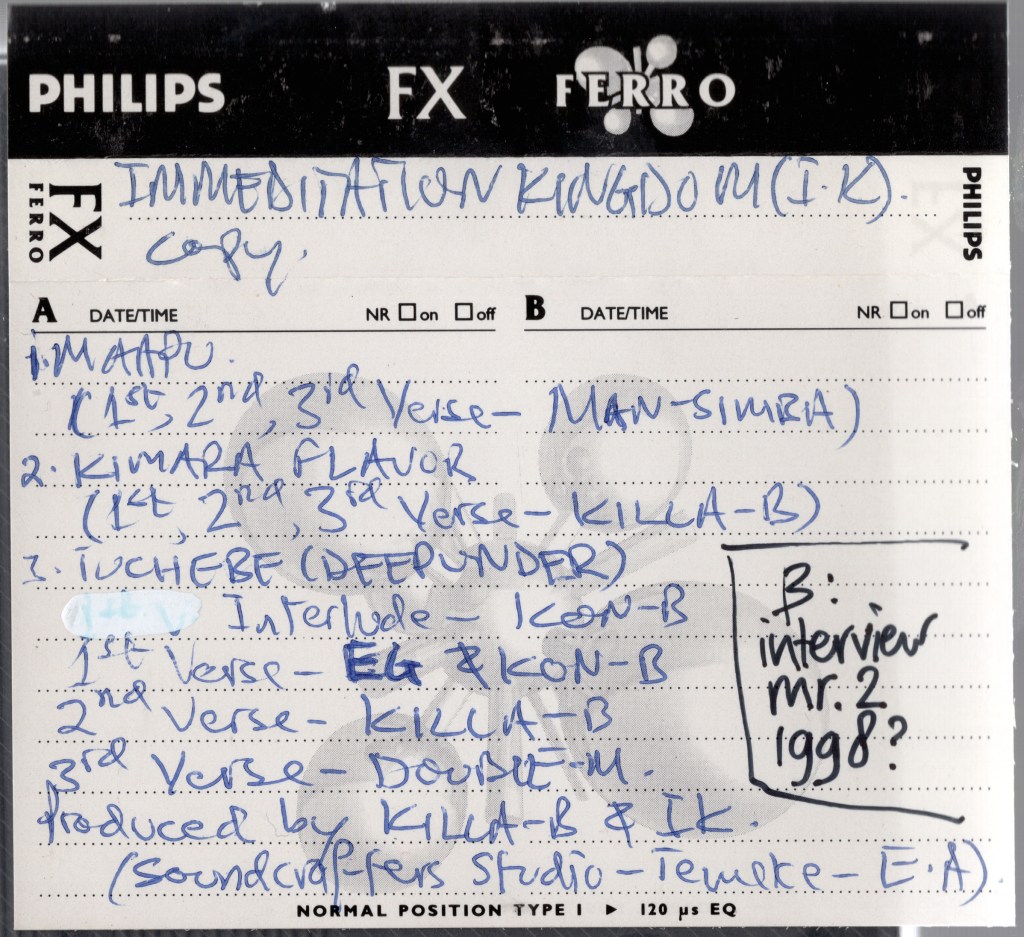 PHILIPS FX FERRO
FX FERRO
IMMEDITATION KINGDOM (I.K).
copy.
PHILIPS
A DATE/TIME NR on off
B DATE/TIME NR on off
1. MAAPU.
(1st, 2nd, 3rd Verse- MAN-SIMBA)
2. KIMARA FLAVOR
(1st, 2nd, 3rd Verse- KILLA-B)
3. TUCHEBE (DEEPUNDER)
Interlude- KON-B
1st Verse- EG & KON-B
2nd Verse- KILLA-B
3rd Verse- DOUBLE-M.
Produced by KILLA-B & IK.
(Soundcrafters Studio-Temeke- E.A)
B:
interview
mr. 2
1998?
NORMAL POSITION TYPE I ▶ 120 µs EQ